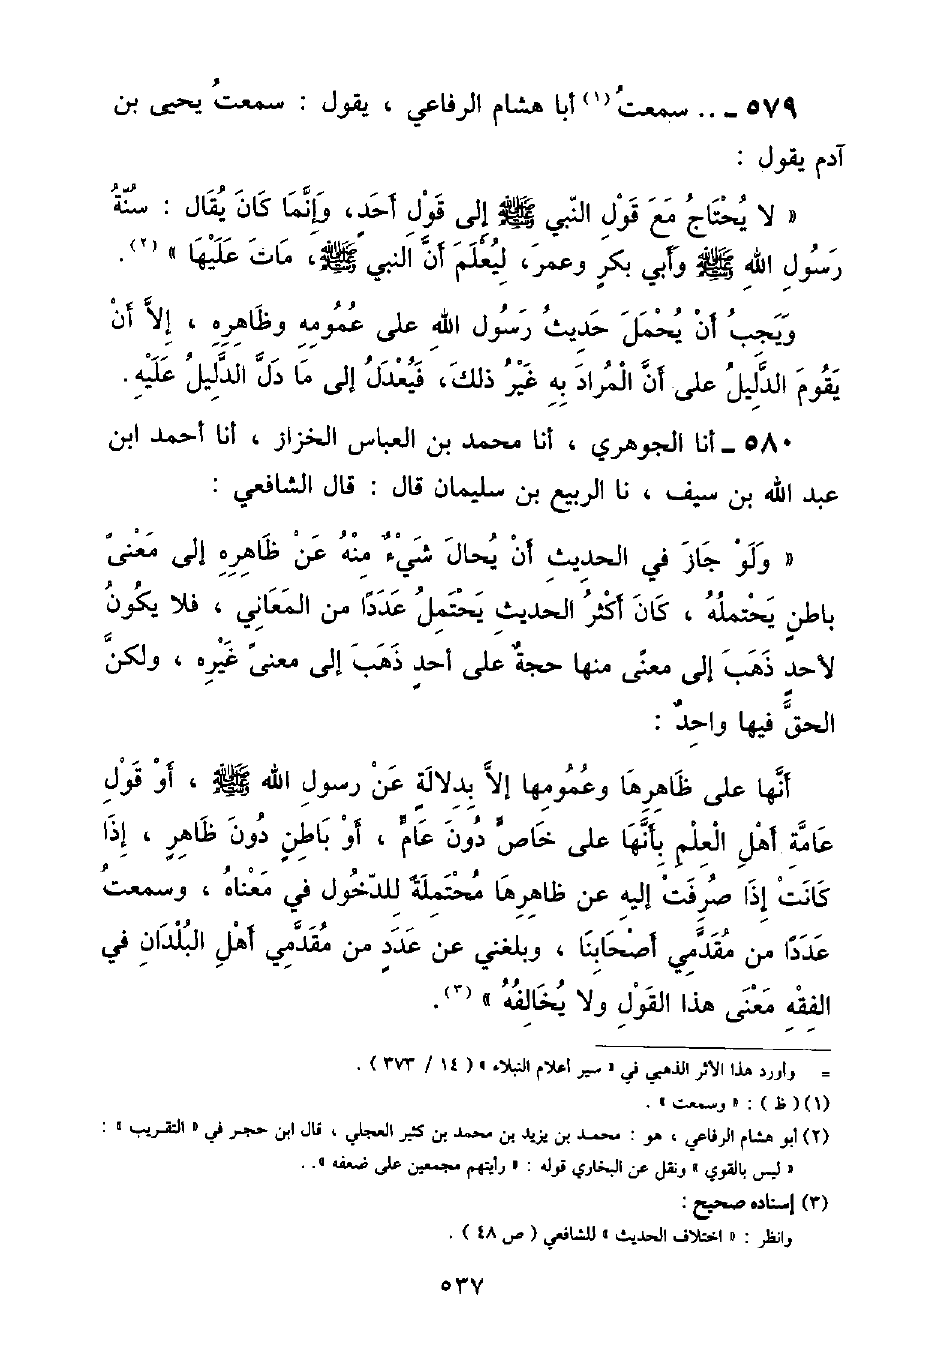 ٥٧٩ ـ .. سمعتُ(١) أبا هشام الرفاعي ، يقول : سمعتُ يحيى بن
آدم يقول :
« لا يُحْتَاجُ مَعَ قَوْلِ النّبي ﷺ إلى قَوْلِ أحَدٍ، وَإِنَّمَا كَانَ يُقَال : سنّةُ
رَسُولِ اللهِ ﷺ وَأَبي بكرٍ وعمرَ، لِيُعْلَمَ أنَّ النبي ﷺ، مَاتَ عَلَيْهَا »(٢).
وَيَجِبُ أنْ يُحْمَلَ حَديثُ رَسُول اللهِ على عُمُومِهِ وظَاهِرِهِ ، إلاَّ أنْ
يَقُومَ الدَّلِيلُ على أنَّ الْمُرادَ بِهِ غَيْرُ ذلكَ، فَيُعْدَلُ إلى مَا دَلَّ الدَّلِيلُ عَلَيْهِ .
٥٨٠ ـ أنا الجوهري ، أنا محمد بن العباس الخزاز ، أنا أحمد ابن
عبد الله بن سيف ، نا الربيع بن سليمان قال : قال الشافعي :
« وَلَوْ جَازَ في الحديثِ أنْ يُحالَ شَيْءٌ مِنْهُ عَنْ ظَاهِرِهِ إلى مَعْنىً
باطنٍ يَحْتملُهُ ، كَانَ أكْثَرُ الحديثِ يَحْتَمِلُ عَدَدًا من المَعَاني ، فلا يكونُ
لأحدٍ ذَهَبَ إلى معنًى منها حجةٌ على أحدٍ ذَهَبَ إلى معنىً غَيْرِه ، ولكنَّ
الحقَّ فيها واحِدٌ :
أنَّها على ظَاهِرِهَا وعُمُومِها إلاَّ بِدِلالَةٍ عَنْ رسولِ الله ﷺ ، أوْ قَوْلِ
عامَّةِ أهْلِ الْعِلْمِ بِأنَّهَا على خَاصٌّ دُونَ عَامٌّ ، أوْ بَاطنٍ دُونَ ظَاهِرٍ ، إذَا
كَانَتْ إذَا صُرِفَتْ إليهِ عن ظاهِرِهَا مُحْتَمِلَةً للدّخُول في مَعْناهُ ، وسمعتُ
عَدَدًا من مُقَدَّمِي أصْحَابِنَا ، وبلغني عن عَدَدٍ من مُقَدَّمي أهْلِ البُلْدَانِ في
الفِقْهِ مَعْنَى هذا القَوْلِ ولا يُخَالِفُهُ »(٣).
= وأورد هذا الأثر الذهبي في « سير أعلام النبلاء » ( ١٤ / ٣٧٣ ) .
(١) ( ظ ) : « وسمعت » .
(٢) أبو هشام الرفاعي ، هو : محمد بن يزيد بن محمد بن كثير العجلي ، قال ابن حجر في « التقريب » :
« ليس بالقوي » ونقل عن البخاري قوله : « رأيتهم مجمعين على ضعفه »..
(٣) إسناده صحيح :
وانظر : « اختلاف الحديث » للشافعي ( ص ٤٨ ) .
٥٣٧